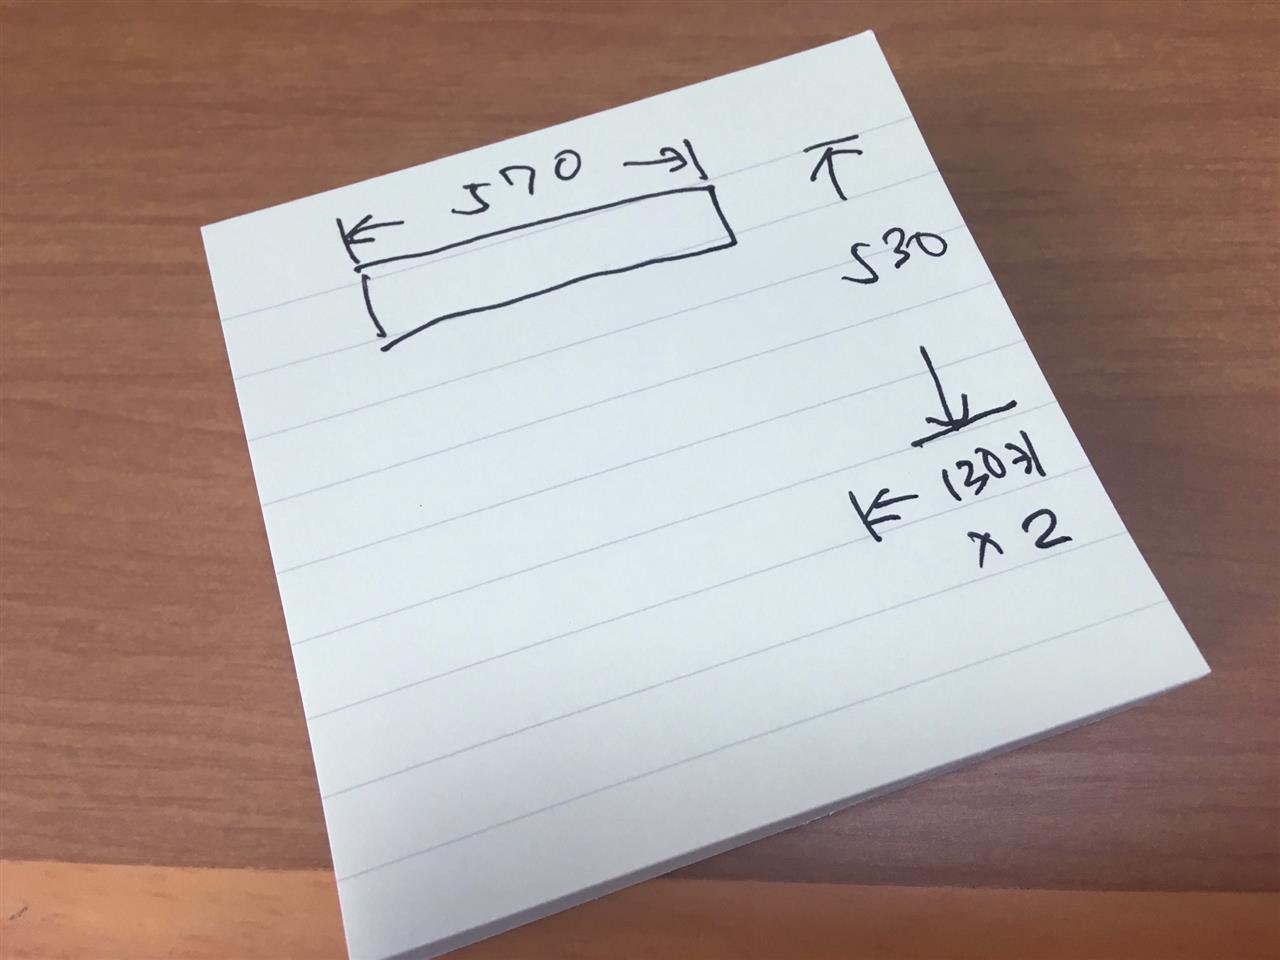 570
530
130
x 2